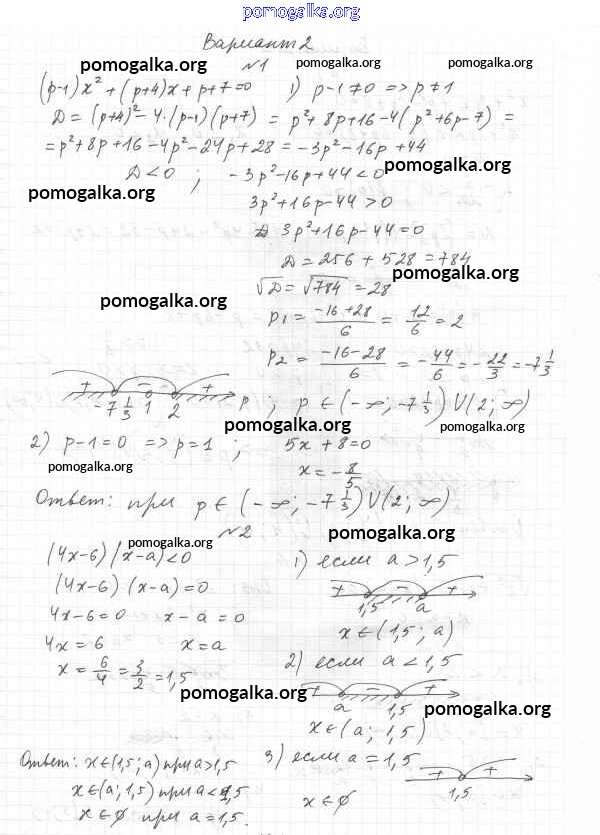 pomogalka.org
Вариант 2
pomogalka.org pomogalka.org pomogalka.org
№1
(p-1)x² + (p+4)x + p+7=0 1) p-1≠0 => p≠1
D = (p+4)² - 4·(p-1)(p+7) = p²+8p+16-4(p²+6p-7) =
= p²+8p+16-4p²-24p+28 = -3p²-16p+44
pomogalka.org
D<0 ; -3p²-16p+44<0
pomogalka.org
3p²+16p-44>0
3p²+16p-44=0
D = 256 + 528 = 784
pomogalka.org
√D = √784 = 28
pomogalka.org
p₁ = (-16+28)/6 = 12/6 = 2
p₂ = (-16-28)/6 = -44/6 = -22/3 = -7 1/3
+ - +
-7 1/3 1 2 p ; p ∈ (-∞; -7 1/3) U (2; ∞)
pomogalka.org pomogalka.org
2) p-1=0 => p=1 ; 5x+8=0
pomogalka.org
x = -8/5
Ответ: при p ∈ (-∞; -7 1/3) U (2; ∞)
№2
pomogalka.org
pomogalka.org
(4x-6)(x-a)<0
(4x-6)(x-a)=0
4x-6=0 x-a=0
4x=6 x=a
x = 6/4 = 3/2 = 1,5
1) если a>1,5
+ - +
1,5 a
x ∈ (1,5; a)
2) если a<1,5
pomogalka.org
+ - +
a 1,5
pomogalka.org
x ∈ (a; 1,5)
3) если a = 1,5
+ +
1,5
x ∈ ∅
Ответ: x ∈ (1,5; a) при a>1,5
x ∈ (a; 1,5) при a<1,5
x ∈ ∅ при a=1,5.